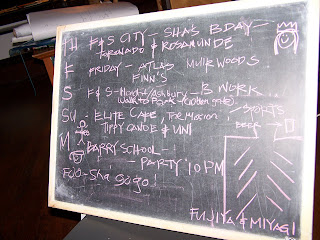 TH F&S CITY - SHA'S BDAY -
TORONADO & ROSAMUNDE
F FRIDAY - ATLAS MUIR WOODS
FINN'S
S F & S - Haight/Ashbury - B WORK
walk to Park (Golden gate)
SU ELITE CAFE, The Mission, SPORTS
TIPPY CANOE & UNI
BEER
M BARRY SCHOOL -
- PARTY 10 PM
FOO-Sha' gogo!
FUJIYA & MIYAGI